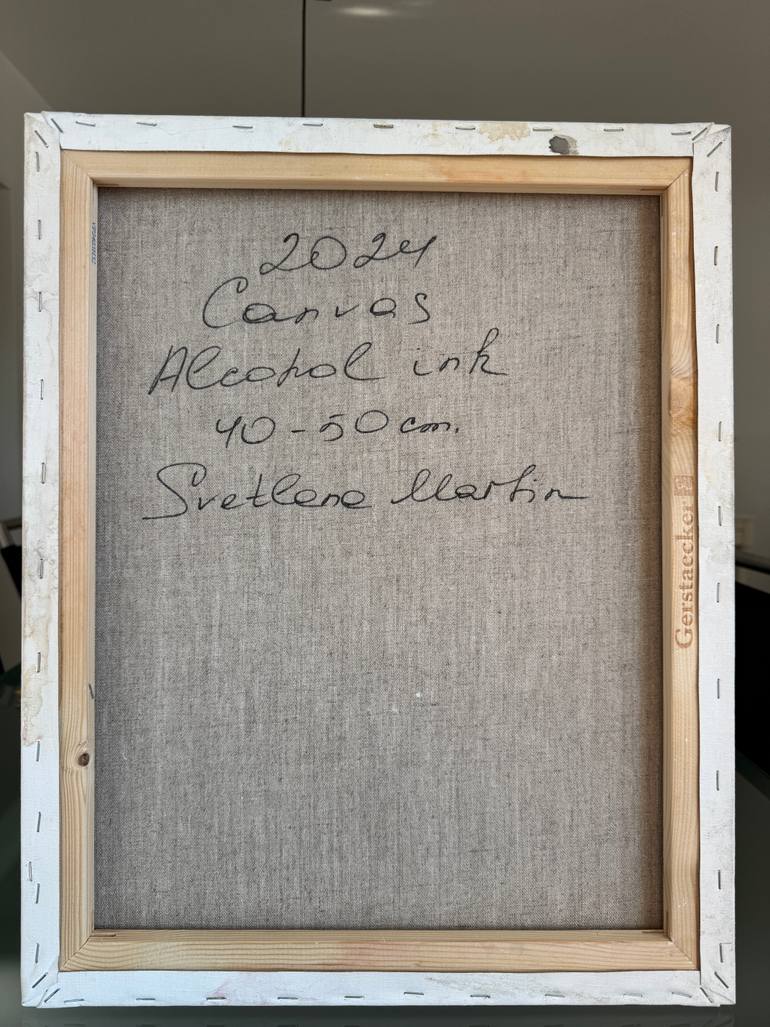 2024
Canvas
Alcohol ink
40-50 cm.
Svetlana Martin
Gerstaecker